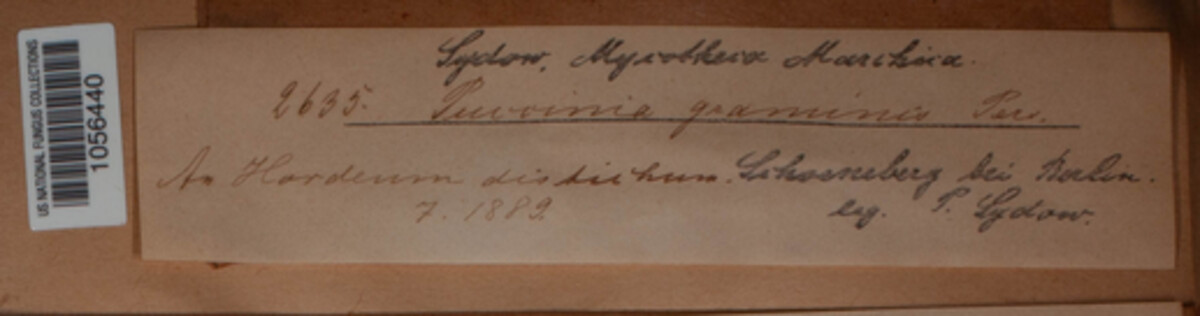 US NATIONAL FUNGUS COLLECTIONS
1056440
Sydow, Mycotheca Marchica.
2635. Puccinia graminis Pers.
An Hordeum distichum. Schoeneberg bei Berlin.
7. 1889. leg. P. Sydow.